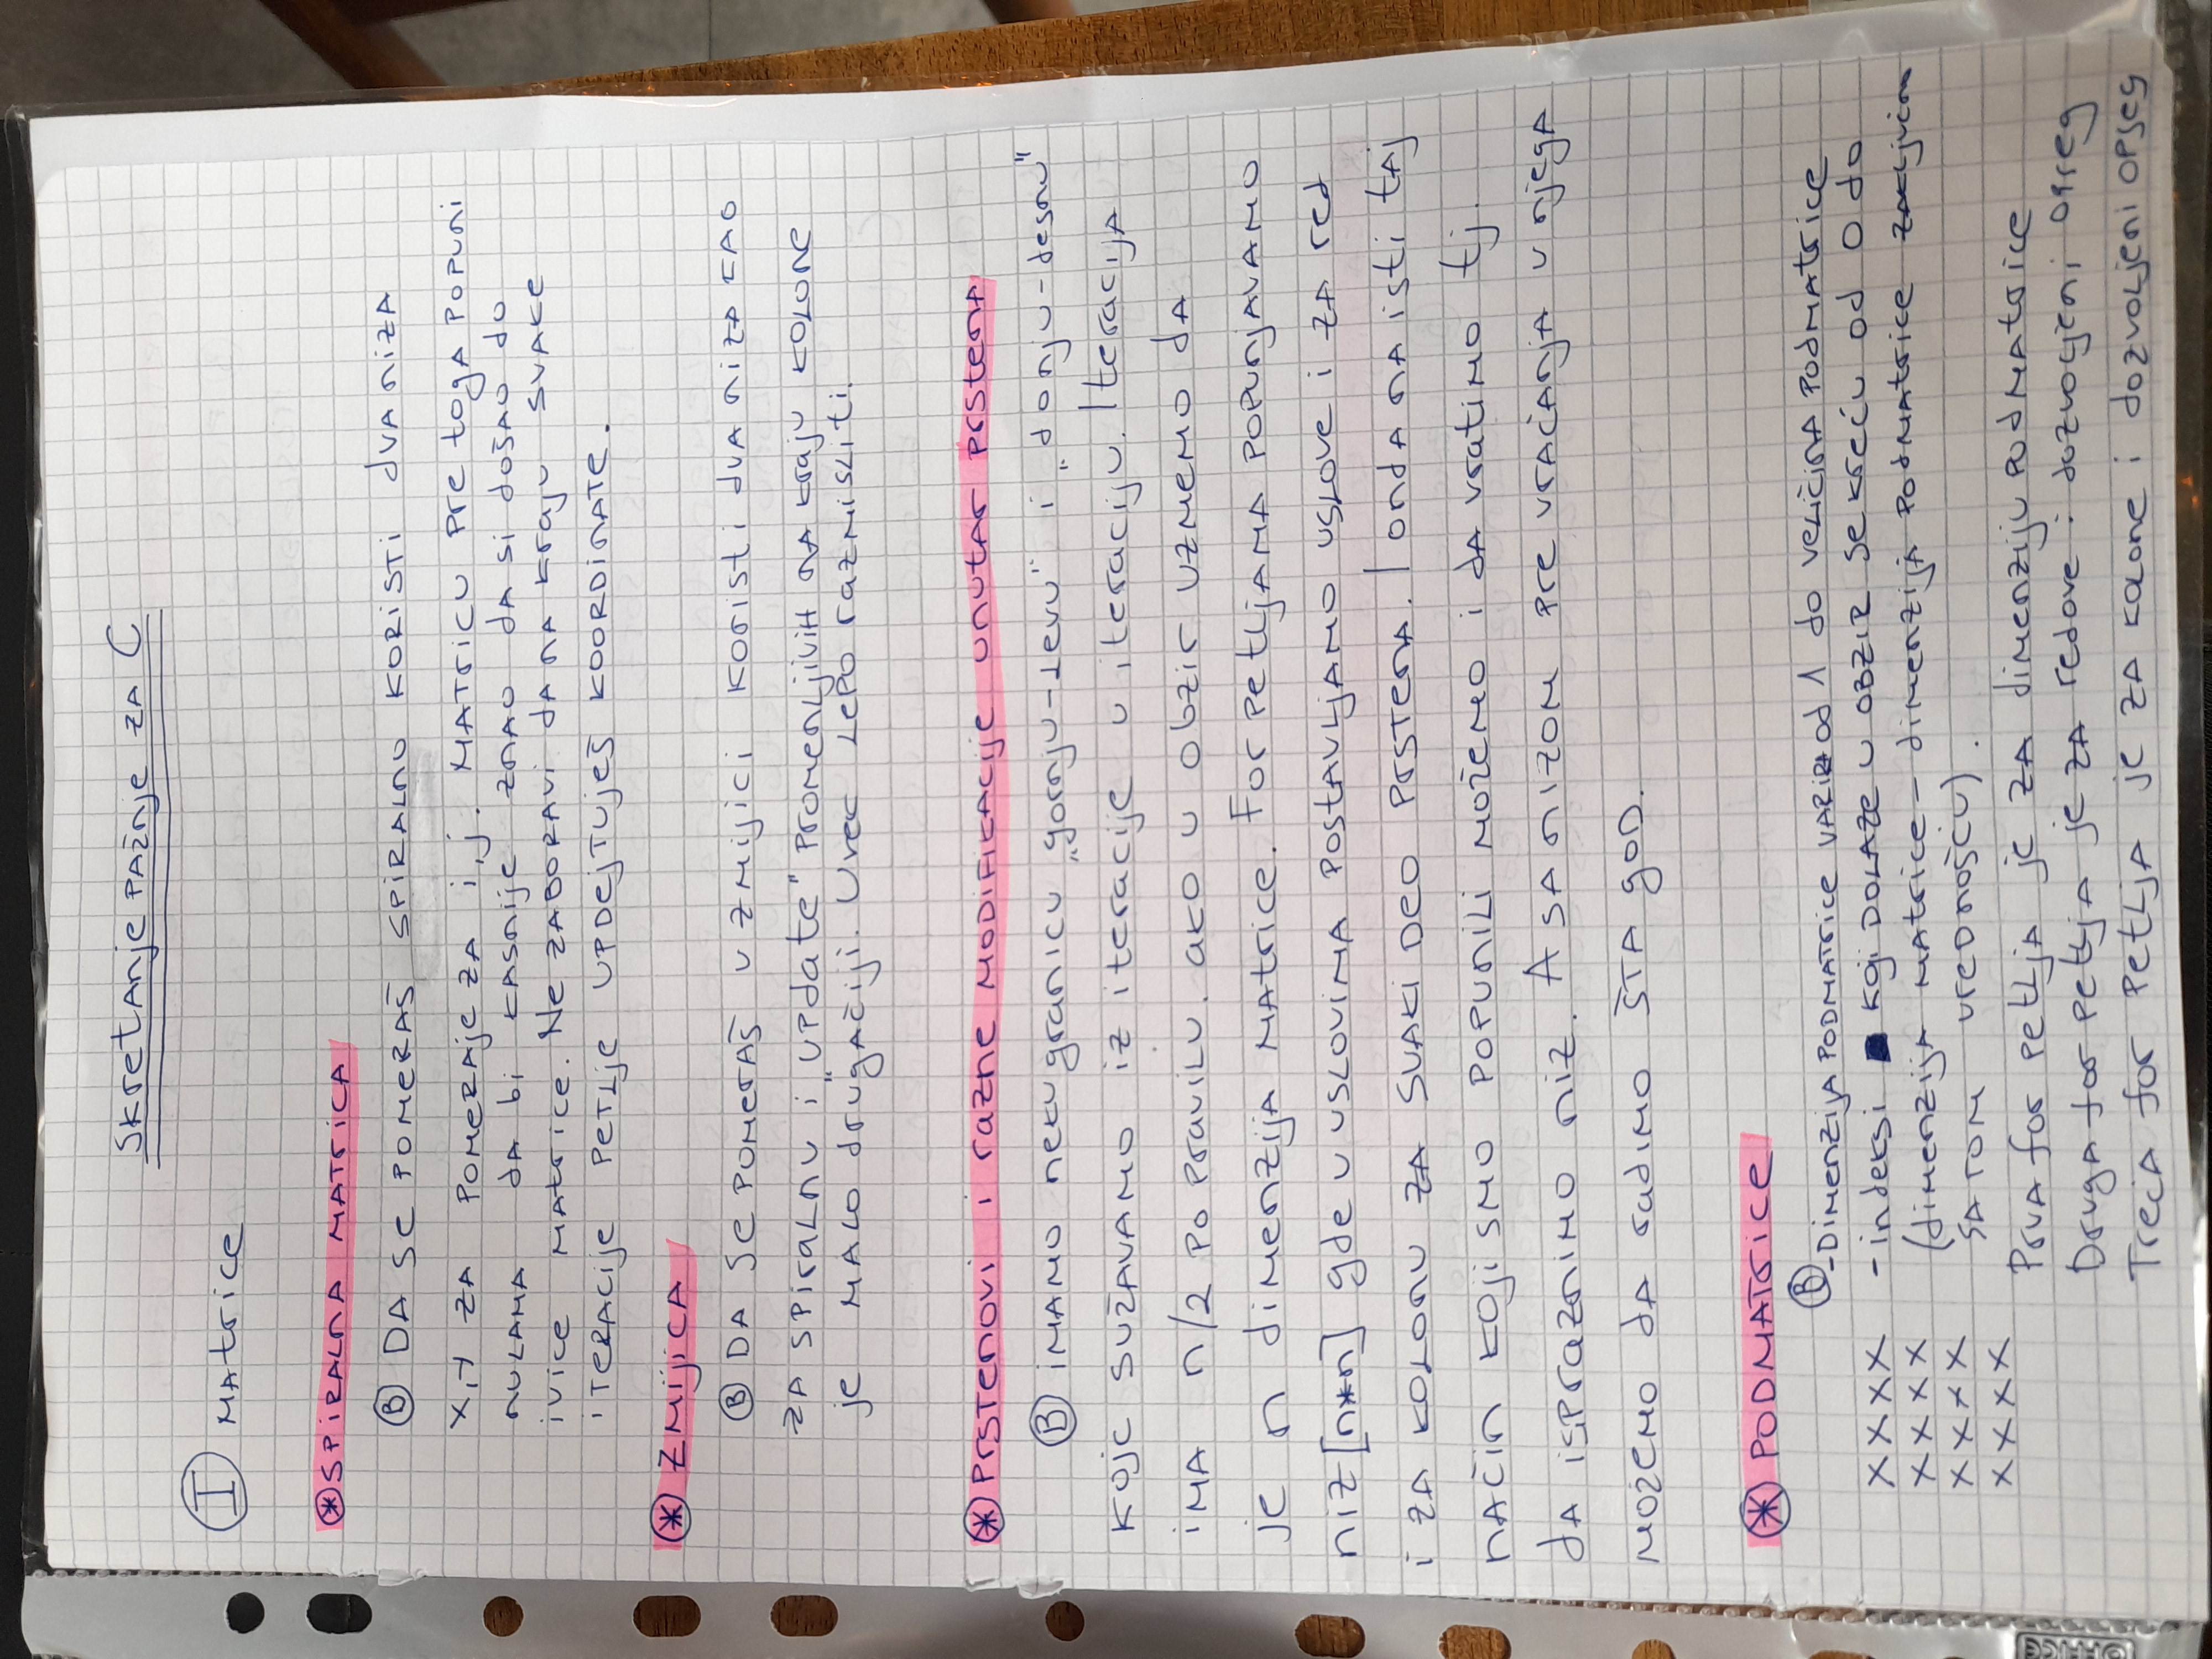 Skretanje pažnje za C
I Matrice
* Spiralna matrica
B Da se pomeraš spiralno koristi dva niza
x,y za pomeraje za i,j. Matricu pre toga popuni
nulama da bi kasnije znao da si došao do
ivice matrice. Ne zaboravi da na kraju svake
iteracije petlje updejtuješ koordinate.
* Zmijica
B Da se pomeraš u zmijici koristi dva niza kao
za spiralnu i „update" promenljivih na kraju kolone
je malo drugačiji. Uvek lepo razmisliti.
* Prstenovi i razne modifikacije unutar prstena
B Imamo neku granicu „gornju-levu" i „donju-desnu"
koje sužavamo iz iteracije u iteraciju. Iteracija
ima n/2 po pravilu. ako u obzir uzmemo da
je n dimenzija matrice. For petljama popunjavamo
niz[n*n] gde u uslovima postavljamo uslove i za red
i za kolonu za svaki deo prstena. I onda na isti taj
način koji smo popunili možemo i da vratimo tj.
da ispraznimo niz. A sa nizom pre vraćanja u njega
možemo da radimo šta god.
* Podmatrice
B -Dimenzija podmatrice varira od 1 do veličina podmatrice
xxxx -indeksi koji dolaze u obzir se kreću od 0 do
xxxx (dimenzija matrice - dimenzija podmatrice zaključno
xxxx sa tom vrednošću).
xxxx
Prva for petlja je za dimenziju podmatrice
Druga for petlja je za redove i dozvoljeni opseg
Treća for petlja je za kolone i dozvoljeni opseg
OFFICE